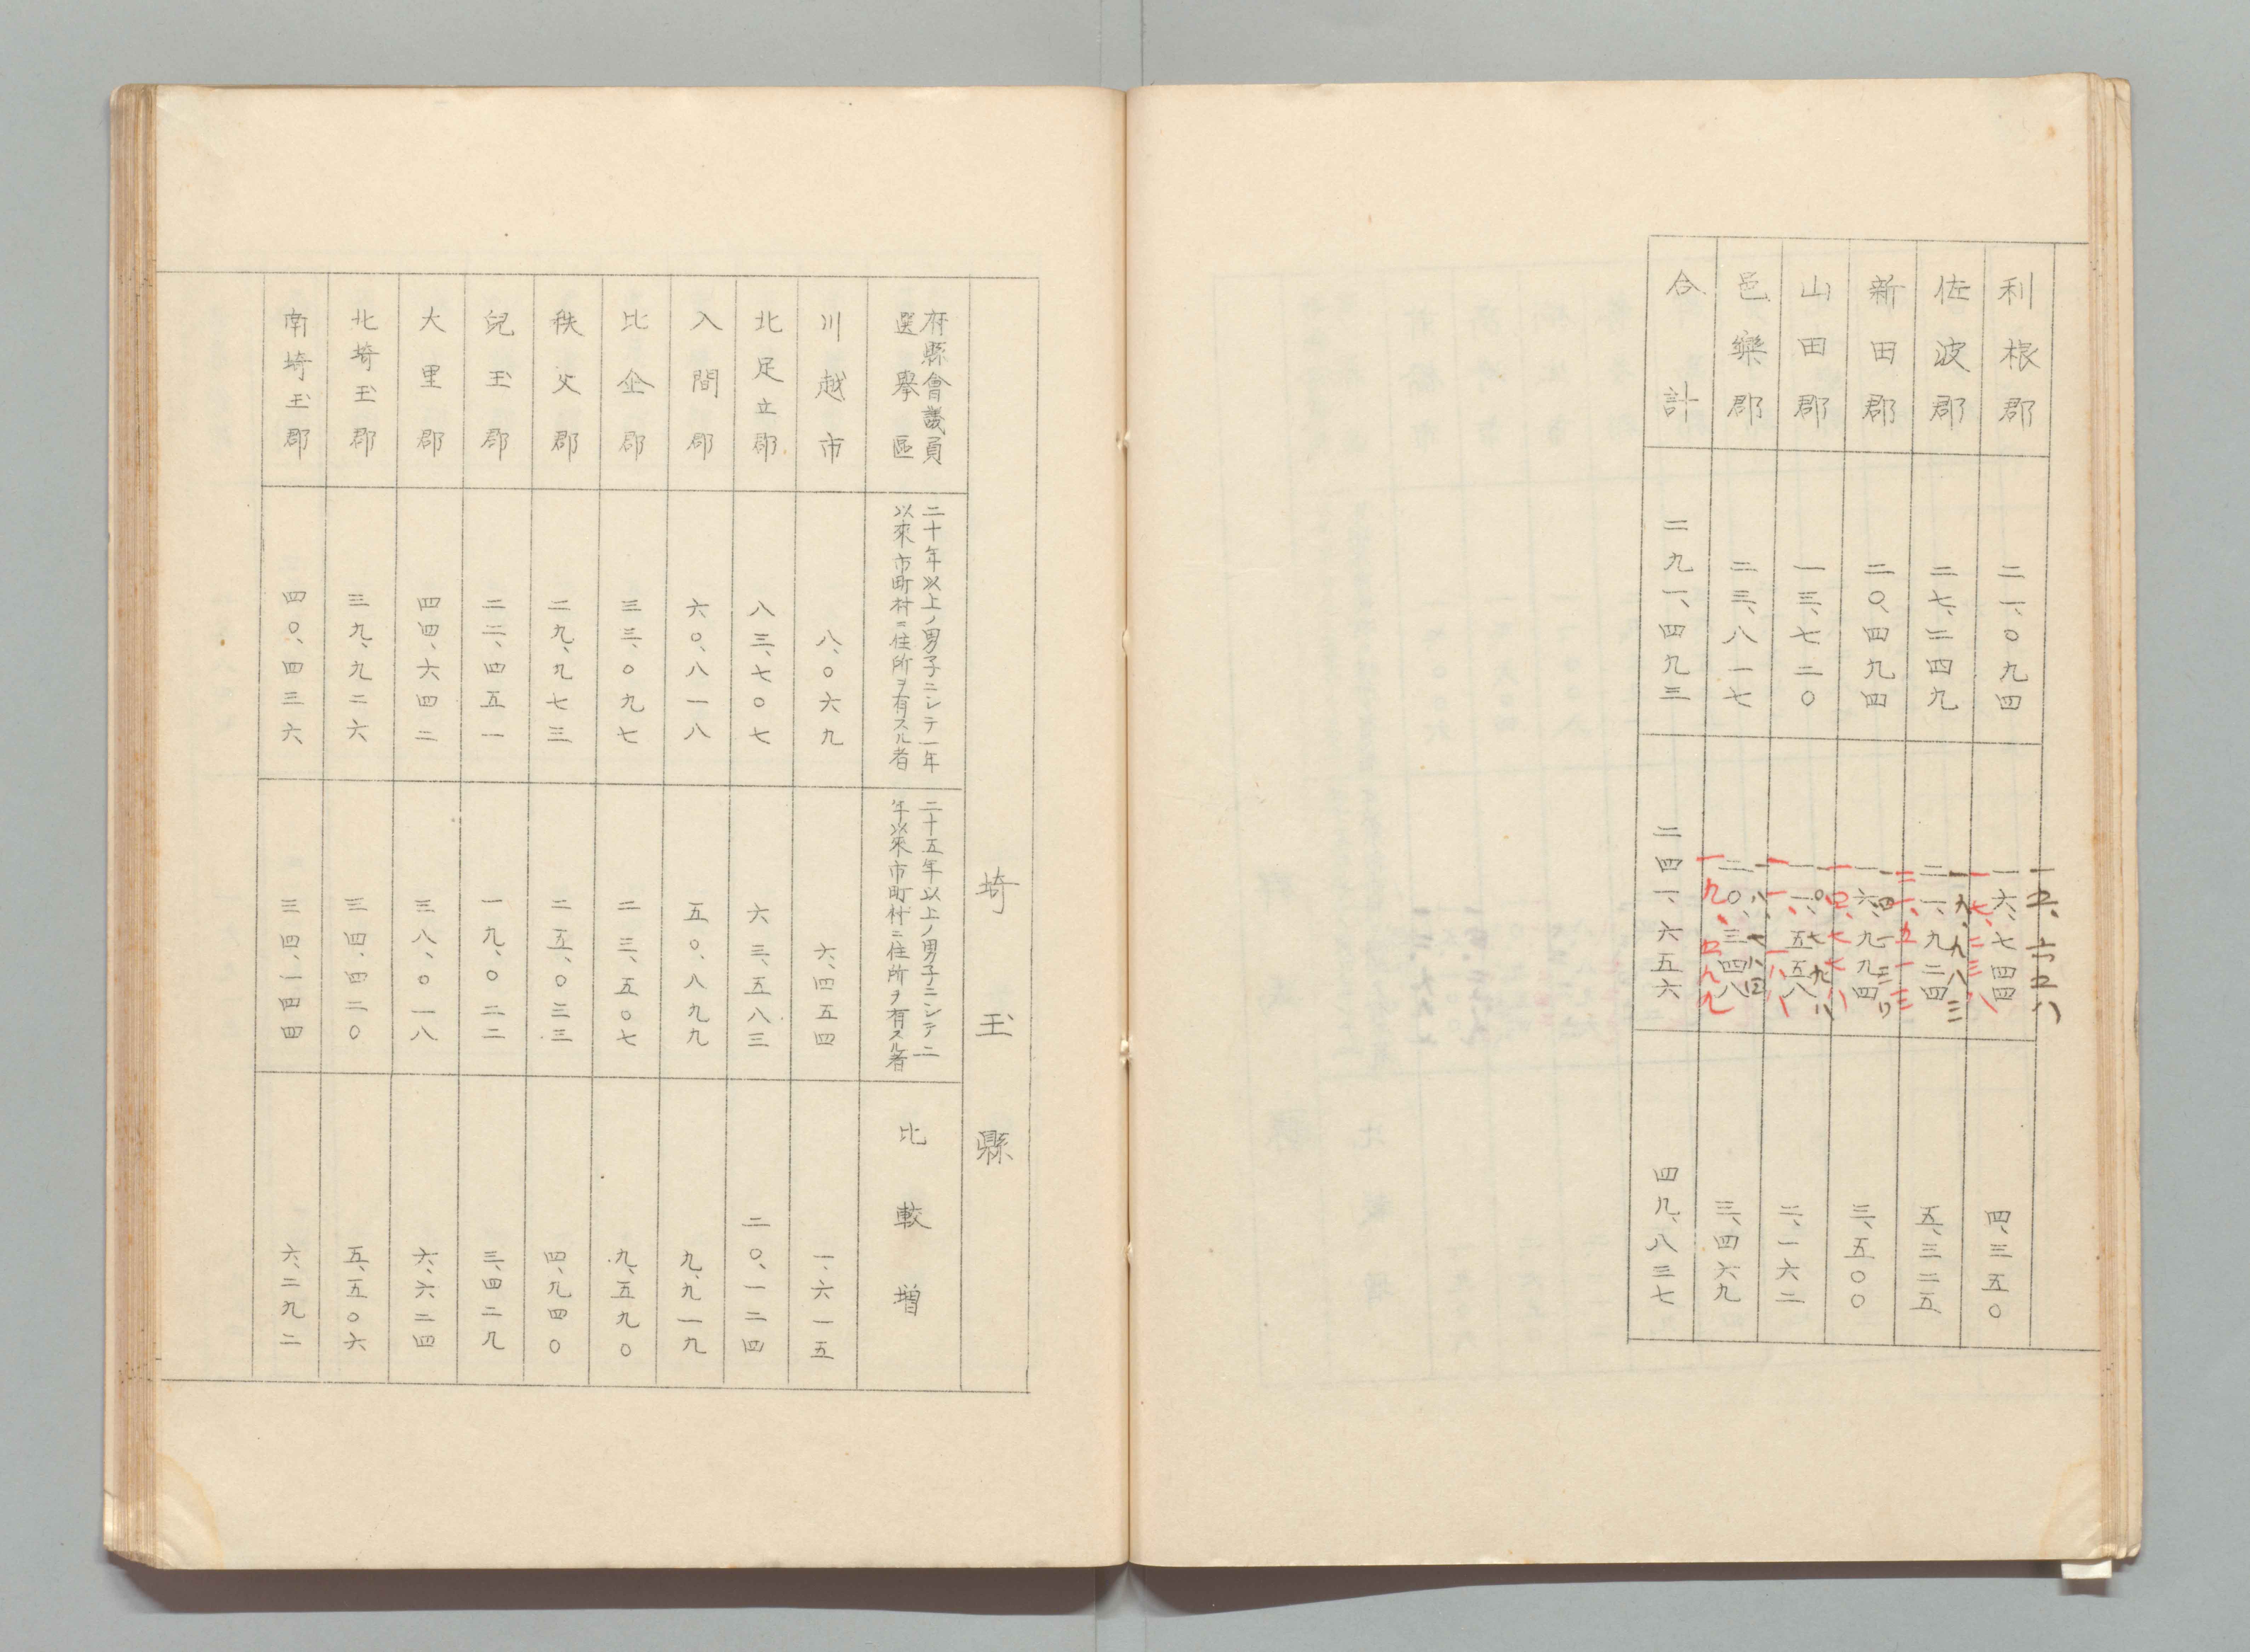 利根郡 二一、〇九四 一六、七四四 四、三五〇
一五、六五八
一七、二三八
佐波郡 二七、二四九 二一、九二四 五、三二五
一九、九八三
二一、五一三
新田郡 二〇、四九四 一六、九九四 三、五〇〇
一四、七七八
山田郡 一三、七二〇 一一、五五八 二、一六二
一〇、七九八
一一、一八八
邑樂郡 二三、八一七 二〇、三四八 三、四六九
一九、五八九
合計 二九一、四九三 二四一、六五六 四九、八三七
埼玉縣
府縣會議員
選擧區
二十年以上ノ男子ニシテ一年
以來市町村ニ住所ヲ有スル者
二十五年以上ノ男子ニシテ二
年以來市町村ニ住所ヲ有スル者
比較增
川越市 八、〇六九 六、四五四 一、六一五
北足立郡 八三、七〇七 六三、五八三 二〇、一二四
入間郡 六〇、八一八 五〇、八九九 九、九一九
比企郡 三三、〇九七 二三、五〇七 九、五九〇
秩父郡 二九、九七三 二五、〇三三 四、九四〇
兒玉郡 二二、四五一 一九、〇二二 三、四二九
大里郡 四四、六四二 三八、〇一八 六、六二四
北埼玉郡 三九、九二六 三四、四二〇 五、五〇六
南埼玉郡 四〇、四三六 三四、一四四 六、二九二